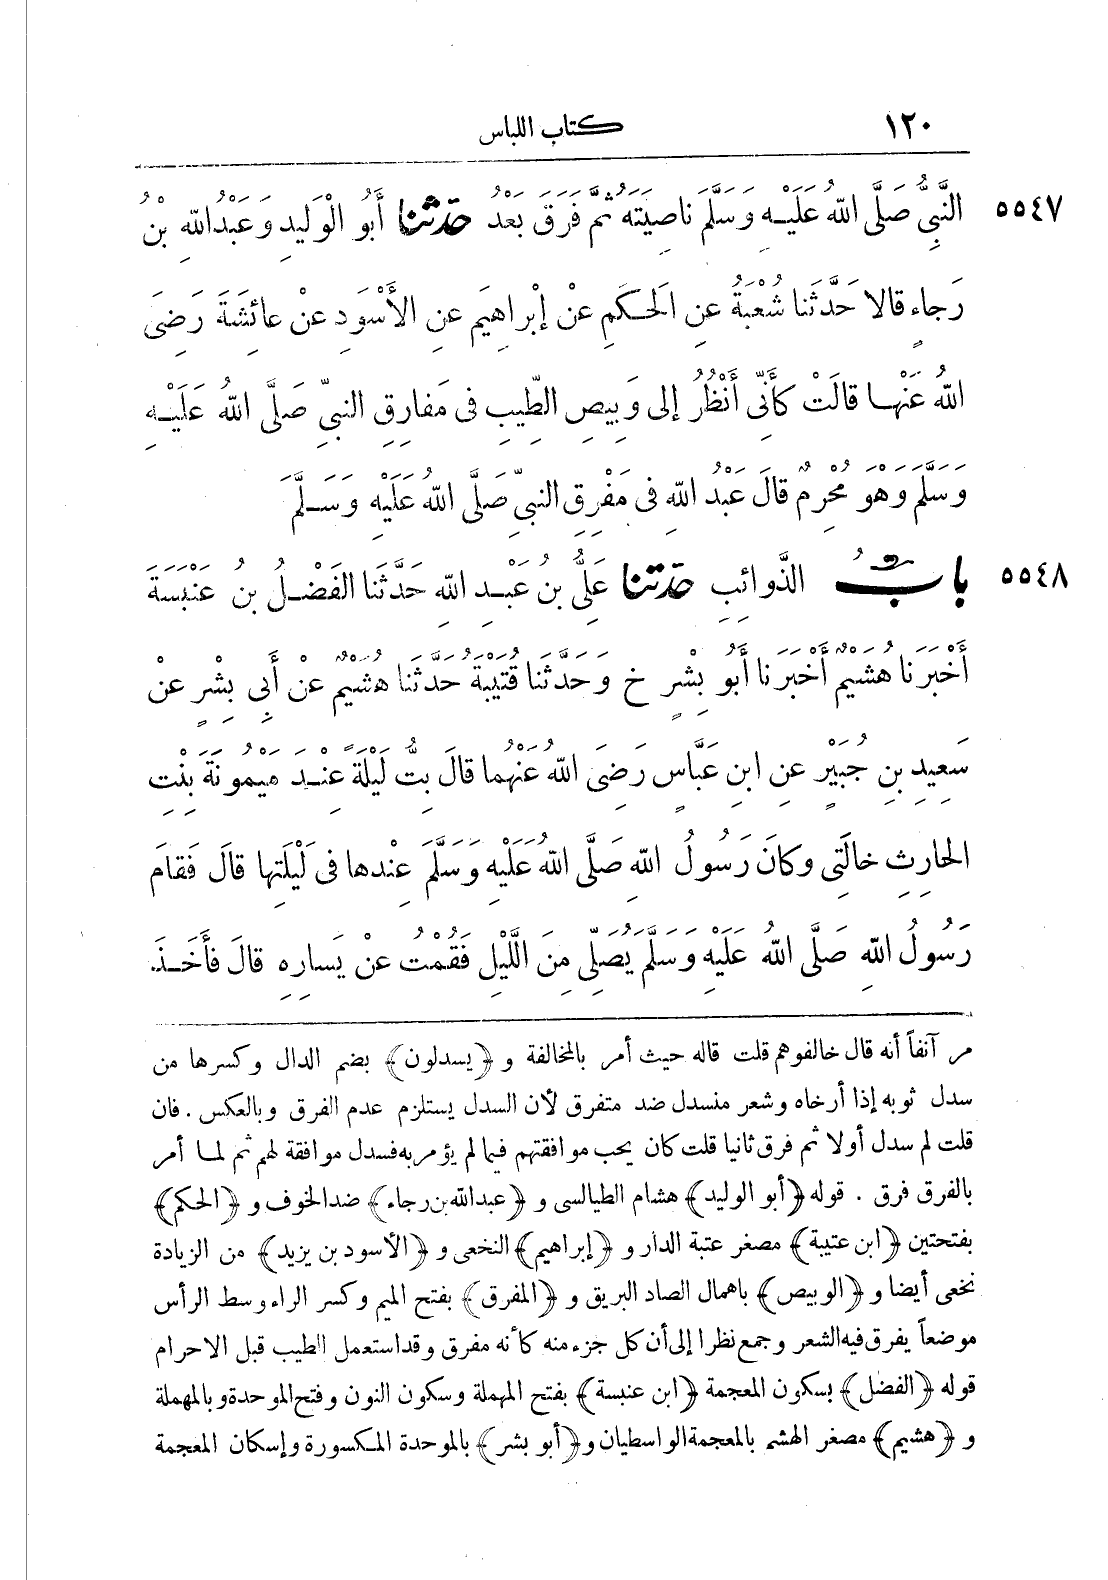 ١٢٠ كتاب اللباس
٥٥٤٧ النَّبِيُّ صَلَّى اللهُ عَلَيْهِ وَسَلَّمَ ناصِيَتَهُ ثُمَّ فَرَقَ بَعْدُ حَدَّثَنا أَبُو الْوَلِيدِ وَعَبْدُ اللهِ بْنُ
رَجاءٍ قالا حَدَّثَنا شُعْبَةُ عنِ الَحكَمِ عنْ إبْراهِيَم عنِ الأَسْوَدِ عنْ عائِشَةَ رَضِىَ
اللهُ عَنْها قالَتْ كَأَنِّى أَنْظُرُ إلى وَبِيصِ الطِّيبِ فى مَفارِقِ النبيِّ صَلَّى اللهُ عَلَيْهِ
وَسَلَّمَ وَهْوَ مُحْرِمٌ قالَ عَبْدُ اللهِ فى مَفْرِقِ النبيِّ صَلَّى اللهُ عَلَيْهِ وَسَلَّمَ
٥٥٤٨ بابُ الذَّوائِبِ حَدَّثَنا عَلِىُّ بنُ عَبْدِ اللهِ حَدَّثَنا الفَضْلُ بنُ عَنْبَسَةَ
أَخْبَرَنا هُشَيْمٌ أَخْبَرَنا أَبُو بِشْرٍ خ وَحَدَّثَنا قُتَيْبَةُ حَدَّثَنا هُشَيْمٌ عنْ أَبِى بِشْرٍ عنْ
سَعِيدِ بنِ جُبَيْرٍ عنِ ابنِ عَبَّاسٍ رَضِىَ اللهُ عَنْهُما قالَ بِتُّ لَيْلَةً عِنْدَ مَيْمُونَةَ بِنْتِ
الحارِثِ خالَتِى وكانَ رَسُولُ اللهِ صَلَّى اللهُ عَلَيْهِ وَسَلَّمَ عِنْدها فى لَيْلَتِها قالَ فَقامَ
رَسُولُ اللهِ صَلَّى اللهُ عَلَيْهِ وَسَلَّمَ يُصَلِّى مِنَ اللَّيْلِ فَقُمْتُ عنْ يَسارِهِ قالَ فأَخَذَ
مر آنفاً أنه قال خالفوهم قلت قاله حيث أمر بالمخالفة و ﴿يسدلون﴾ بضم الدال وكسرها من
سدل ثوبه إذا أرخاه وشعر منسدل ضد متفرق لأن السدل يستلزم عدم الفرق وبالعكس . فان
قلت لم سدل أولا ثم فرق ثانيا قلت كان يحب موافقتهم فيما لم يؤمر به فسدل موافقة لهم ثم لمـا أمر
بالفرق فرق . قوله ﴿أبو الوليد﴾ هشام الطيالسى و ﴿عبدالله بن رجاء﴾ ضد الخوف و ﴿الحكم﴾
بفتحتين ﴿ابن عتيبة﴾ مصغر عتبة الدار و ﴿إبراهيم﴾ النخعى و ﴿الأسود بن يزيد﴾ من الزيادة
نخعى أيضا و ﴿الوبيص﴾ باهمال الصاد البريق و ﴿المفرق﴾ بفتح الميم وكسر الراء وسط الرأس
موضعاً يفرق فيه الشعر وجمع نظرا إلى أن كل جزء منه كأنه مفرق وقد استعمل الطيب قبل الاحرام
قوله ﴿الفضل﴾ بسكون المعجمة ﴿ابن عنبسة﴾ بفتح المهملة وسكون النون وفتح الموحدة وبالمهملة
و ﴿هشيم﴾ مصغر الهشم بالمعجمة الواسطيان و ﴿أبو بشر﴾ بالموحدة المكسورة وإسكان المعجمة